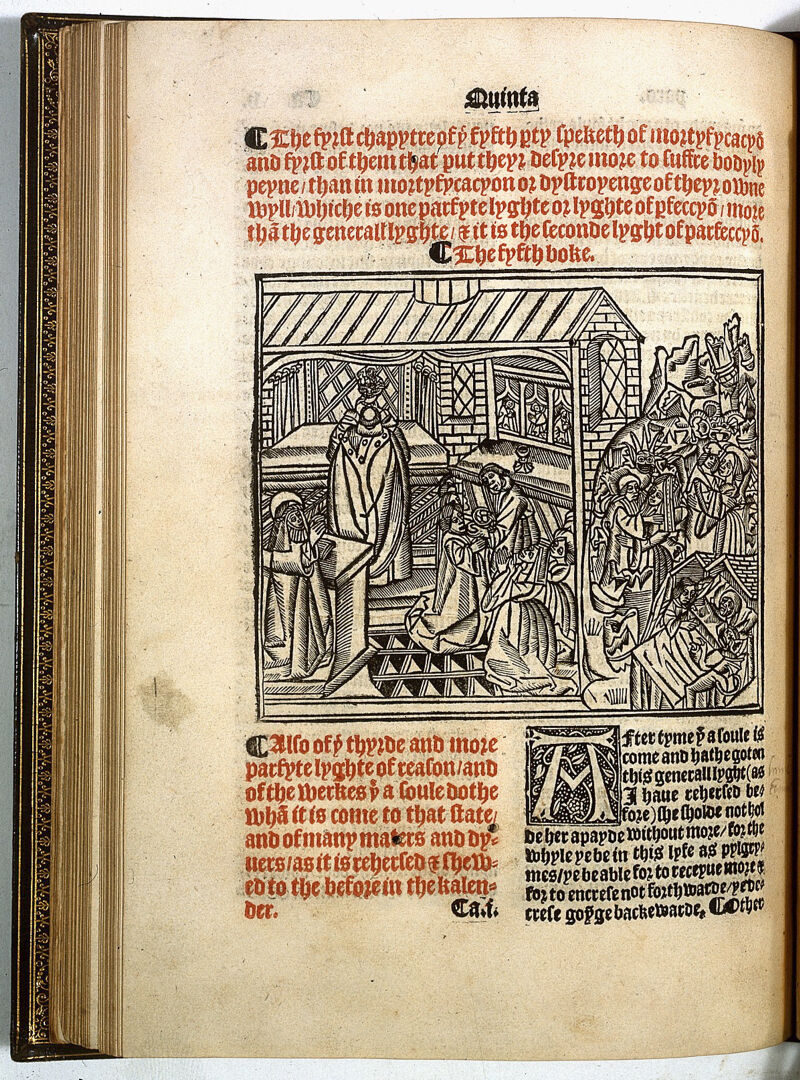 Quinta
¶ The fyrst chapytre of yͤ fyfth ꝑty speketh of mortyfycacyō
and fyrst of them that put theyr desyre more to suffre bodyly
peyne / than in mortyfycacyon or dystroyenge of theyr owne
wyll / whiche is one parfyte lyghte or lyghte of ꝑfeccyō / more
thā the generall lyghte / ⁊ it is the seconde lyght of parfeccyō.
¶ The fyfth boke.
¶ Also of yͤ thyrde and more
parfyte lyghte of reason / and
of the werkes yͭ a soule dothe
whā it is come to that state /
and of many maters and dy-
uers / as it is rehersed ⁊ shew-
ed to the before in the kalen-
der. Ca.i.
After tyme yͭ a soule is
come and hathe goten
this generall lyght (as
I haue rehersed be-
fore) she sholde not hol
de her apayde without more / for the
whyle ye be in this lyfe as pylgry-
mes / ye be able for to receyue more ⁊
for to encrese not forthwarde / ye de-
crese goyͤge backewarde. ¶ Other